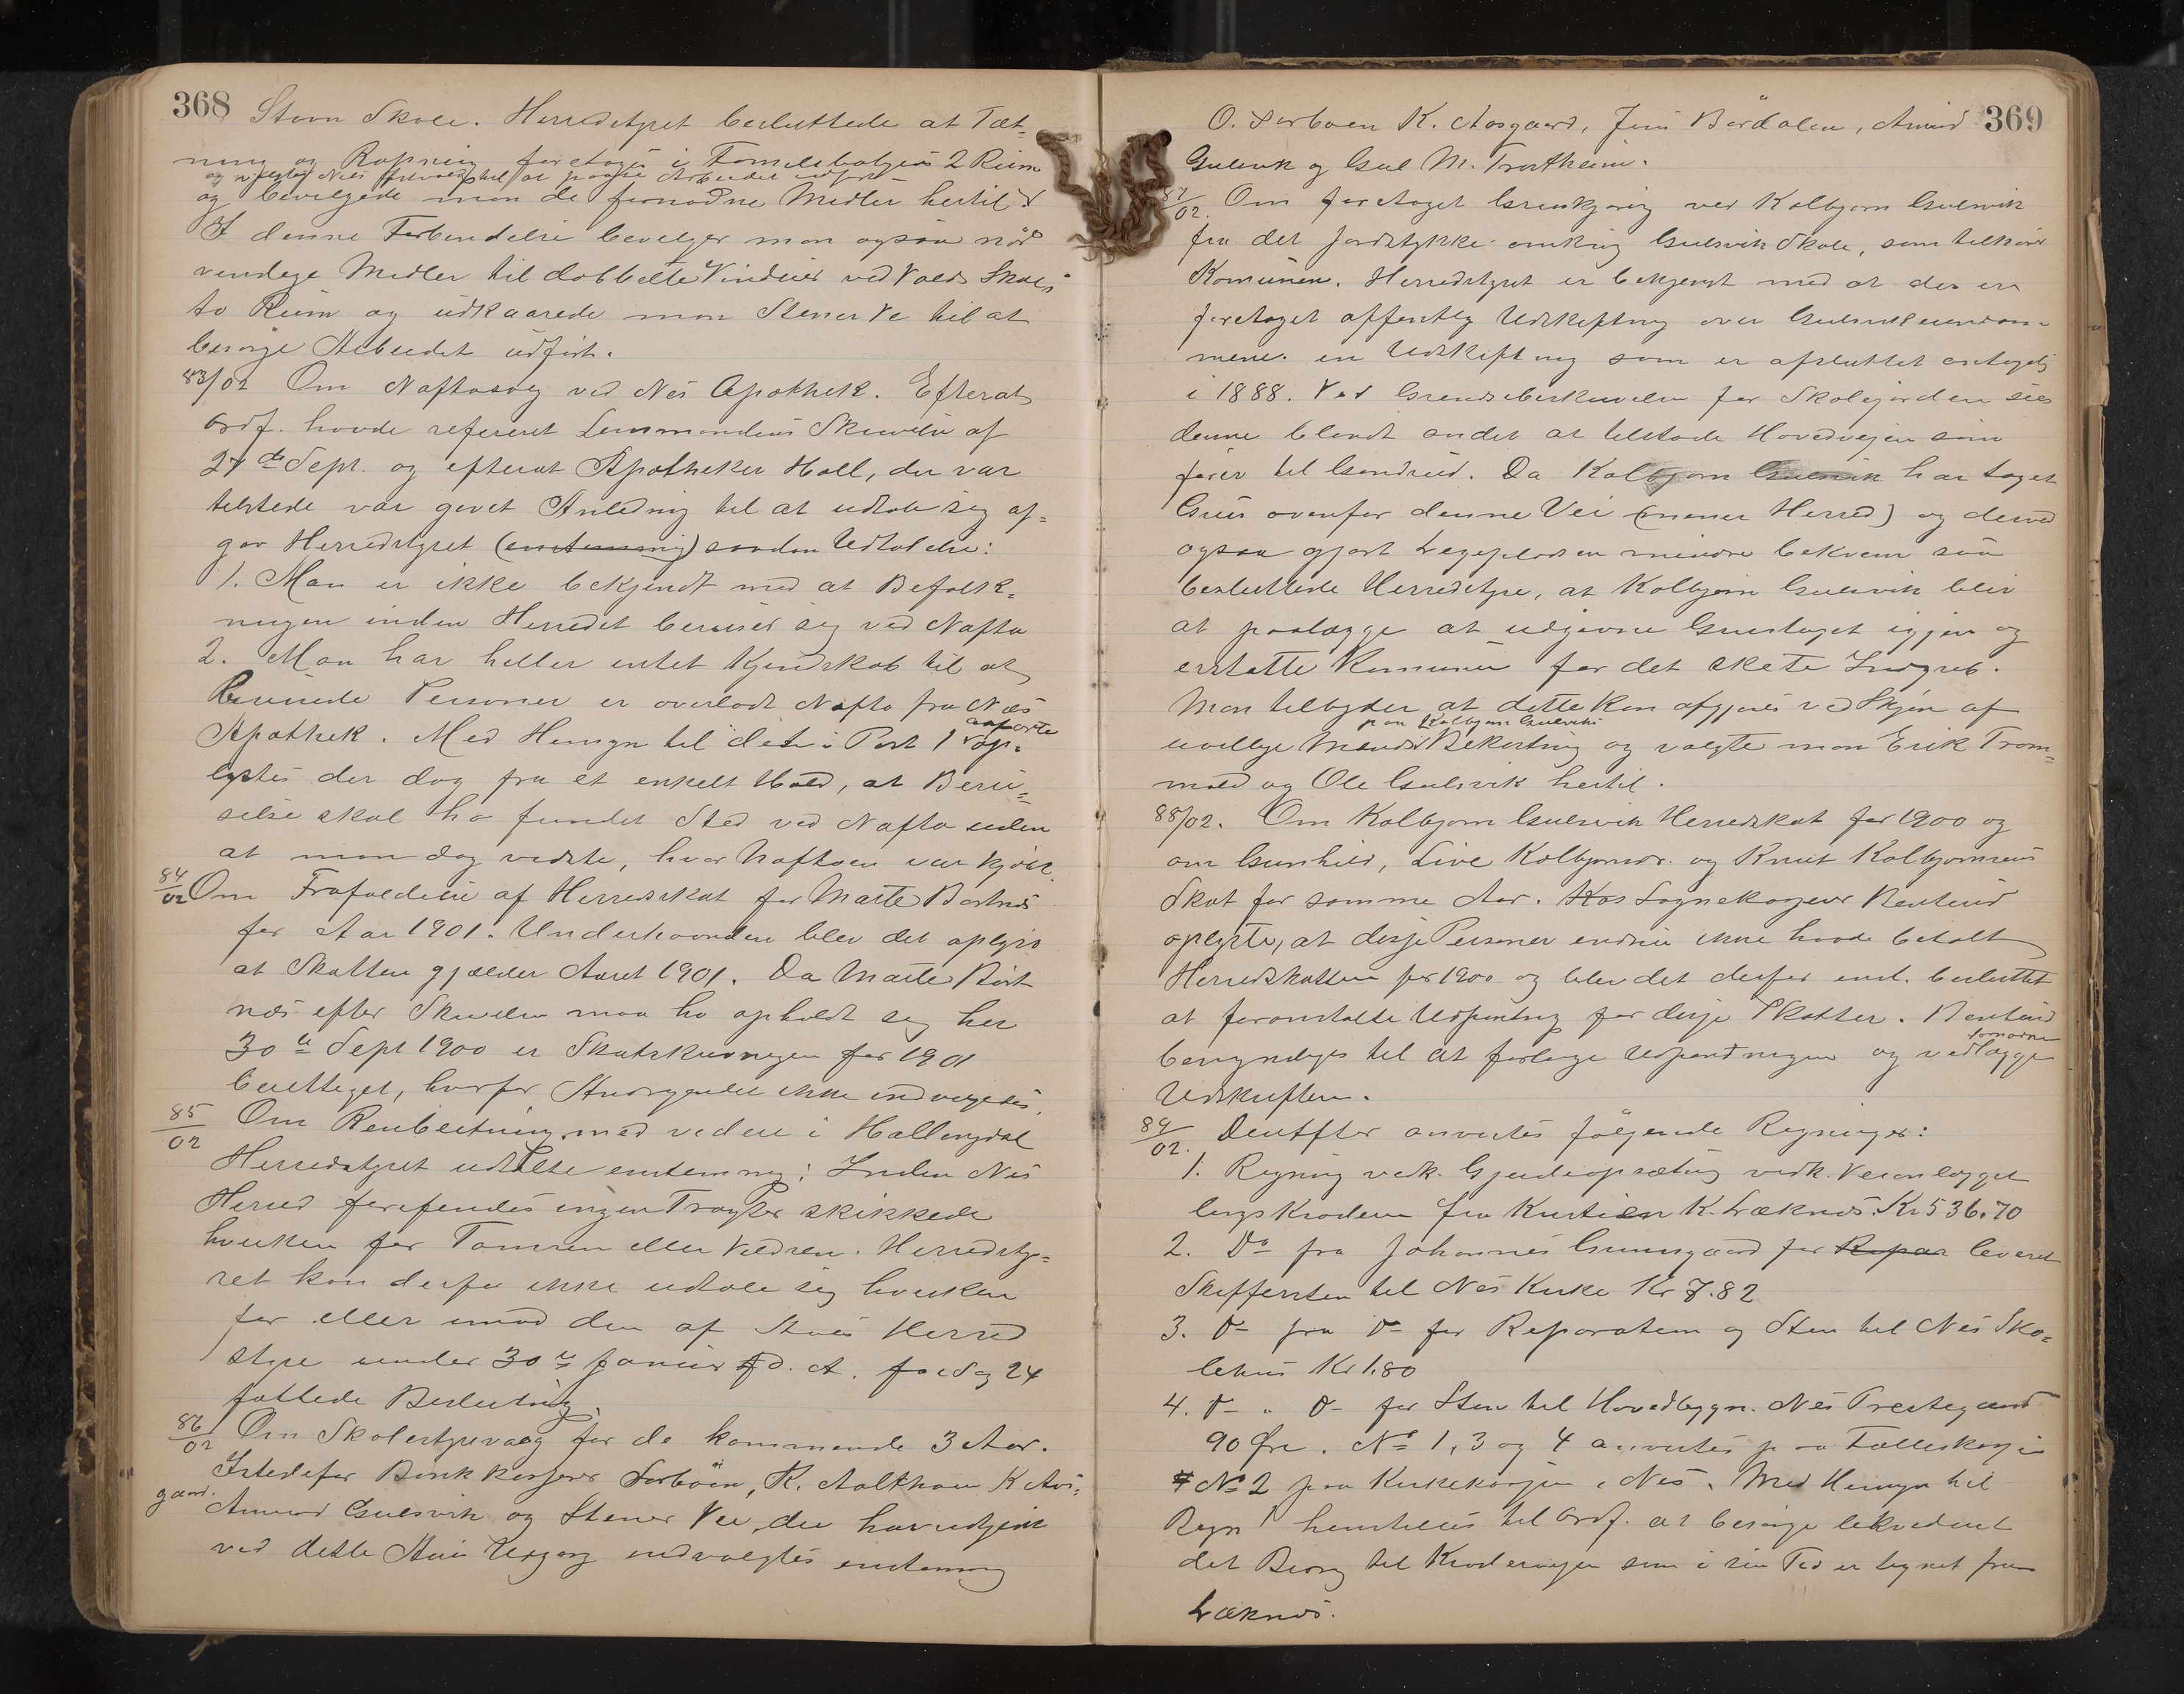 368
Stavn Skole. Herredstyret besluttede at Tæt-
ning og Rapning foretoges i Familiebolgens 2 Rum
og valgtes Nils til at paase Arbeidet udført
og bevilgede man de fornødne Midler hertil.
I denne Forbindelse bevilger man ogsaa nød-
vendige Midler til dobbelte Vinduer ved Volds Skoles
to Rum og udkaarede man Stener Ve til at
besørge Arbeidet udført.
83/02 Om Naftasalg ved Nes Apothek. Efterat
Ordf. havde refereret Lensmandens Skrivelse af
27de Sept. og efterat Apotheker Holl, der var
tilstede var givet Anledning til at udtale sig af-
gav Herredstyret (enstemmig) saadan Udtalelse:
1. Man er ikke bekjendt med at Befolk-
ningen inden Herredet beruser sig ved Nafta
2. Man har heller intet Kjendskab til at
Berusede Personer er overladt Nafta fra Nes
Apothek. Med Hensyn til det i Post 1 anførte op-
lystes der dog fra et enkelt Hold, at Beru-
selse skal ha fundet Sted ved Nafta uden
at man dog vidste, hvor Naftaen var kjøbt.
84/02 Om Frafaldelse af Herredsskat for Marte Bortnes
for Aar 1901. Underhaanden blev det oplyst
at Skatten gjælder Aaret 1901. Da Marte Bort
nes efter Skrivelsen maa ha opholdt sig her
30te Sept 1900 er Skatskrivningen for 1901
berettiget, hvorfor Andragendet ikke indvilgedes.
85/02 Om Renbeitning med videre i Hallingdal
Herredstyret udtalte enstemmig: Inden Nes
Herred forefindes ingen Trakter skikkede
hverken for Tamren eller Vildren. Herredsty-
ret kan derfor ikke udtale sig hverken
for eller imod den af Aals Herred
styre under 30te Januar d. A. Sag 24
fattede Beslutning.
86/02 Om Skolestyrevalg for de kommende 3 Aar.
Istedetfor Bankkasserer Sørbøen, K. Aalkhaen K Aas-
gaard.
Amund Gulsvik og Stener Vee, der har udgaaet
ved dette Aars Udgang indvalgtes enstemmig
369
O. Sørboen K. Aasgaard, Jens Børdalen, Amund
Gulsvik og Gul M. Trostheim.
87/02. Om foretaget Gruskjøring ved Kolbjørn Gulsvik
fra det Jordstykke omkring Gulsvik Skole, som tilhører
Komunen. Herredstyret er bekjendt med at der er
foretaget offentlig Udskiftning over Gulsvikeiendom-
mene. en Udskiftning som er afsluttet antagelig
i 1888. Ved Grændsebeskrivelsen for Skolejorden sies
denne blandt andet at tilstøde Hovedveien som
fører til Gandrud. Da Kolbjørn Gulsvik har taget
Grus ovenfor denne Vei (mener Herred) og derved
ogsaa gjort Legepladsen mindre bekvem saa
besluttede Herredstyre, at Kolbjørn Gulsvik blir
at paalægge at udjevne Grustaget igjen og
erstatte Komunen for det skete Indgreb.
Man tilbyder at dette kan afgjøres ved Skjøn af
paa Kolbjørn Gulsviks
uvillige Mænd Bekostning og valgte man Erik Trom-
mald og Ole Gulsvik hertil.
88/02. Om Kolbjørn Gulsvik Herredskat for 1900 og
om Gunhild, Live Kolbjørnsdr. og Knut Kolbjørnsens
Skat for samme Aar. Kas Sognekasserer Rentend
oplyste, at disse Personer endnu ikke havde betalt
Herredskatten for 1900 og blev det derfor enst. besluttet
at foranstalte Udpantning for disse Skatter.
bemyndiges til at forlange Udpantningen og vedlægge fornødne
Udskrifter.
89/02. Derefter anvistes følgende Regninger:
1. Regning vedk. Gjerdeopsætning vedk. Veianlægget
langs Krøderen fra Kristian K. Læknes. Kr 536.70
2. Do fra Johannes Grimsgaard for Repar leveret
Skiffersten til Nes Kirke Kr 7.82
3. Do fra Do for Reparation og Sten til Nes Sko-
lehus Kr 1.80
4. Do " Do for Sten til Hovedbygn. Nes Prestegaard
90 Øre. No 1, 3 og 4 anvistes paa Fælleskassen
No 2 paa Kirkekassen i Nes. Med Hensyn til
Regn 1 henstilles til Ordf. at besørge likvideret
det Bidrag til Krøderveien som i sin Tid er tegnet fra
Læknes.